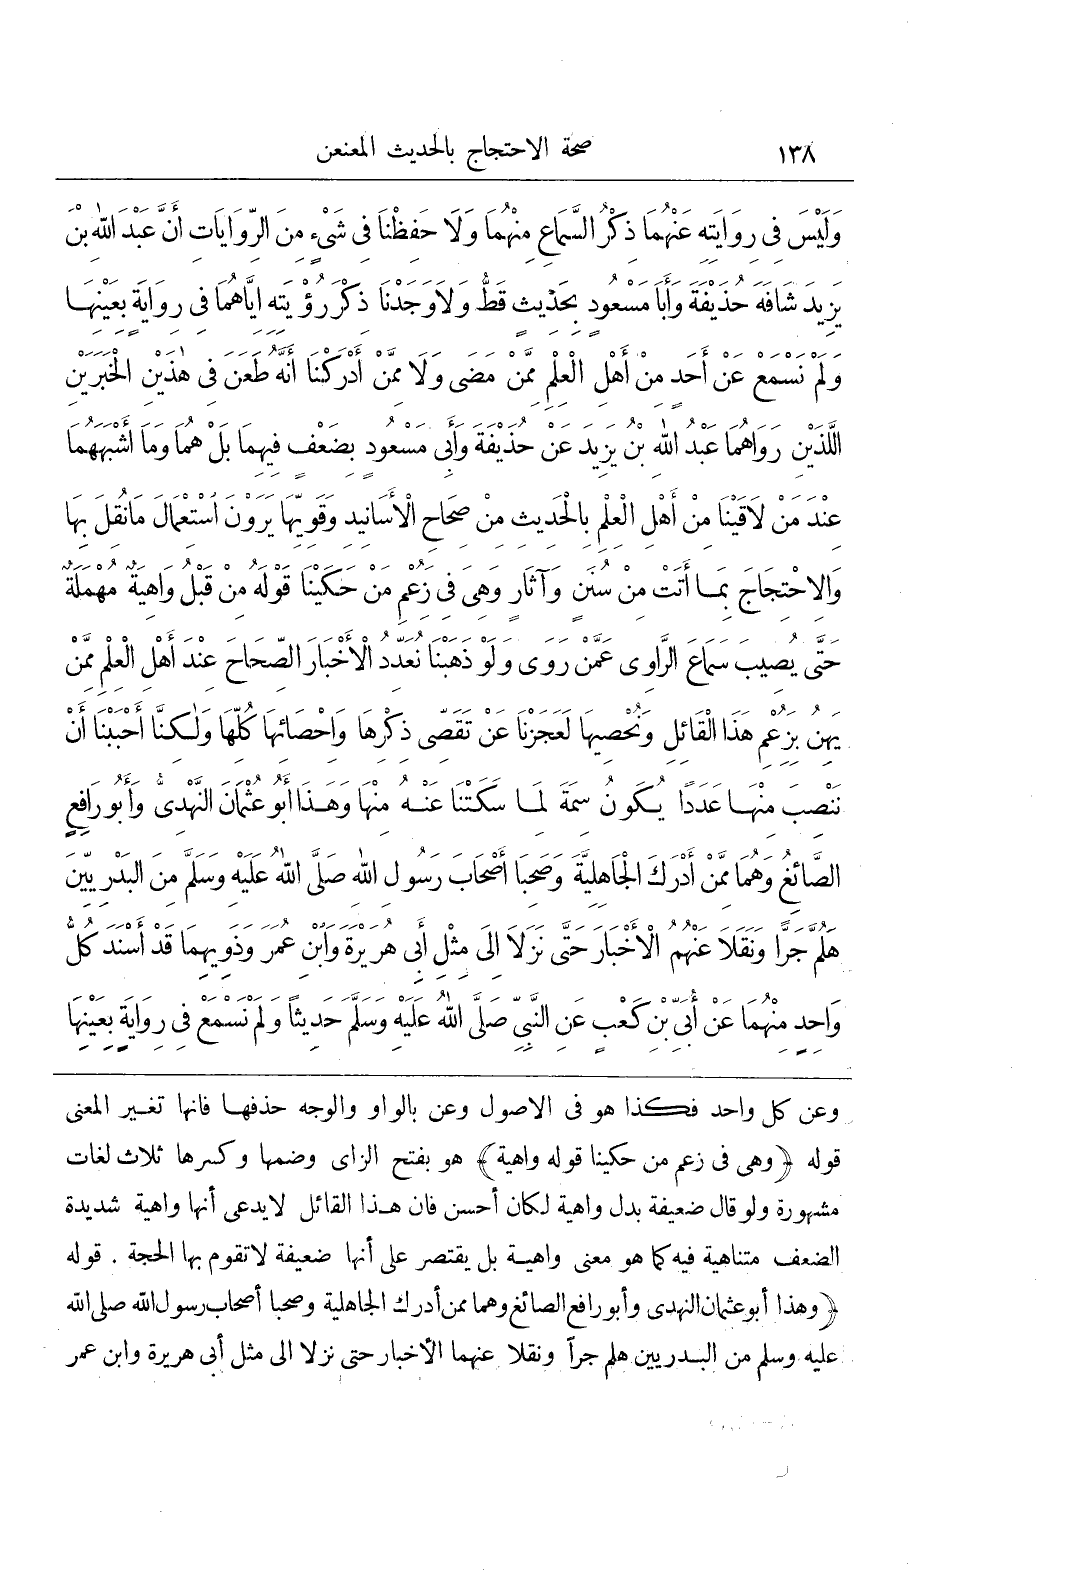 ١٣٨ صحة الاحتجاج بالحديث المعنعن
وَلَيْسَ فِى رِوَايَتِهِ عَنْهُمَا ذِكْرُ السَّمَاعِ مِنْهُمَا وَلَا حَفِظْنَا فِى شَىْءٍ مِنَ الرِّوَايَاتِ أَنَّ عَبْدَ اللهِ بْنَ
يَزِيدَ شَافَهَ حُذَيْفَةَ وَأَبَا مَسْعُودٍ بِحَدِيثٍ قَطُّ وَلَا وَجَدْنَا ذِكْرَ رُؤْيَتِهِ إِيَّاهُمَا فِى رِوَايَةٍ بِعَيْنِهَا
وَلَمْ نَسْمَعْ عَنْ أَحَدٍ مِنْ أَهْلِ الْعِلْمِ مِمَّنْ مَضَى وَلَا مِمَّنْ أَدْرَكْنَا أَنَّهُ طَعَنَ فِى هٰذَيْنِ الْخَبَرَيْنِ
اللَّذَيْنِ رَوَاهُمَا عَبْدُ اللهِ بْنُ يَزِيدَ عَنْ حُذَيْفَةَ وَأَبِى مَسْعُودٍ بِضَعْفٍ فِيهِمَا بَلْ هُمَا وَمَا أَشْبَهَهُمَا
عِنْدَ مَنْ لَاقَيْنَا مِنْ أَهْلِ الْعِلْمِ بِالْحَدِيثِ مِنْ صِحَاحِ الْأَسَانِيدِ وَقَوِيِّهَا يَرَوْنَ اسْتِعْمَالَ مَا نُقِلَ بِهَا
وَالِاحْتِجَاجَ بِمَا أَتَتْ مِنْ سُنَنٍ وَآثَارٍ وَهِىَ فِى زَعْمِ مَنْ حَكَيْنَا قَوْلَهُ مِنْ قَبْلُ وَاهِيَةٌ مُهْمَلَةٌ
حَتَّى يُصِيبَ سَمَاعَ الرَّاوِى عَمَّنْ رَوَى وَلَوْ ذَهَبْنَا نُعَدِّدُ الْأَخْبَارَ الصِّحَاحَ عِنْدَ أَهْلِ الْعِلْمِ مِمَّنْ
يَهِنُ بِزَعْمِ هَذَا الْقَائِلِ وَنُحْصِيهَا لَعَجَزْنَا عَنْ تَقَصِّى ذِكْرِهَا وَإِحْصَائِهَا كُلِّهَا وَلٰكِنَّا أَحْبَبْنَا أَنْ
نَنْصِبَ مِنْهَا عَدَدًا يَكُونُ سِمَةً لِمَا سَكَتْنَا عَنْهُ مِنْهَا وَهَذَا أَبُو عُثْمَانَ النَّهْدِىُّ وَأَبُو رَافِعٍ
الصَّائِغُ وَهُمَا مِمَّنْ أَدْرَكَ الْجَاهِلِيَّةَ وَصَحِبَا أَصْحَابَ رَسُولِ اللهِ صَلَّى اللهُ عَلَيْهِ وَسَلَّمَ مِنَ الْبَدْرِيِّينَ
هَلُمَّ جَرًّا وَنَقَلَا عَنْهُمُ الْأَخْبَارَ حَتَّى نَزَلَا إِلَى مِثْلِ أَبِى هُرَيْرَةَ وَابْنِ عُمَرَ وَذَوِيهِمَا قَدْ أَسْنَدَ كُلُّ
وَاحِدٍ مِنْهُمَا عَنْ أُبَىِّ بْنِ كَعْبٍ عَنِ النَّبِىِّ صَلَّى اللهُ عَلَيْهِ وَسَلَّمَ حَدِيثًا وَلَمْ نَسْمَعْ فِى رِوَايَةٍ بِعَيْنِهَا
وعن كل واحد فكذا هو فى الاصول وعن بالواو والوجه حذفها فانها تغير المعنى
قوله ﴿وهى فى زعم من حكينا قوله واهية﴾ هو بفتح الزاى وضمها وكسرها ثلاث لغات
مشهورة ولو قال ضعيفة بدل واهية لكان أحسن فان هذا القائل لايدعى أنها واهية شديدة
الضعف متناهية فيه كما هو معنى واهية بل يقتصر على أنها ضعيفة لاتقوم بها الحجة . قوله
﴿وهذا أبو عثمان النهدى وأبو رافع الصائغ وهما ممن أدرك الجاهلية وصحبا أصحاب رسول الله صلى الله
عليه وسلم من البدريين هلم جراً ونقلا عنهما الأخبار حتى نزلا الى مثل أبى هريرة وابن عمر